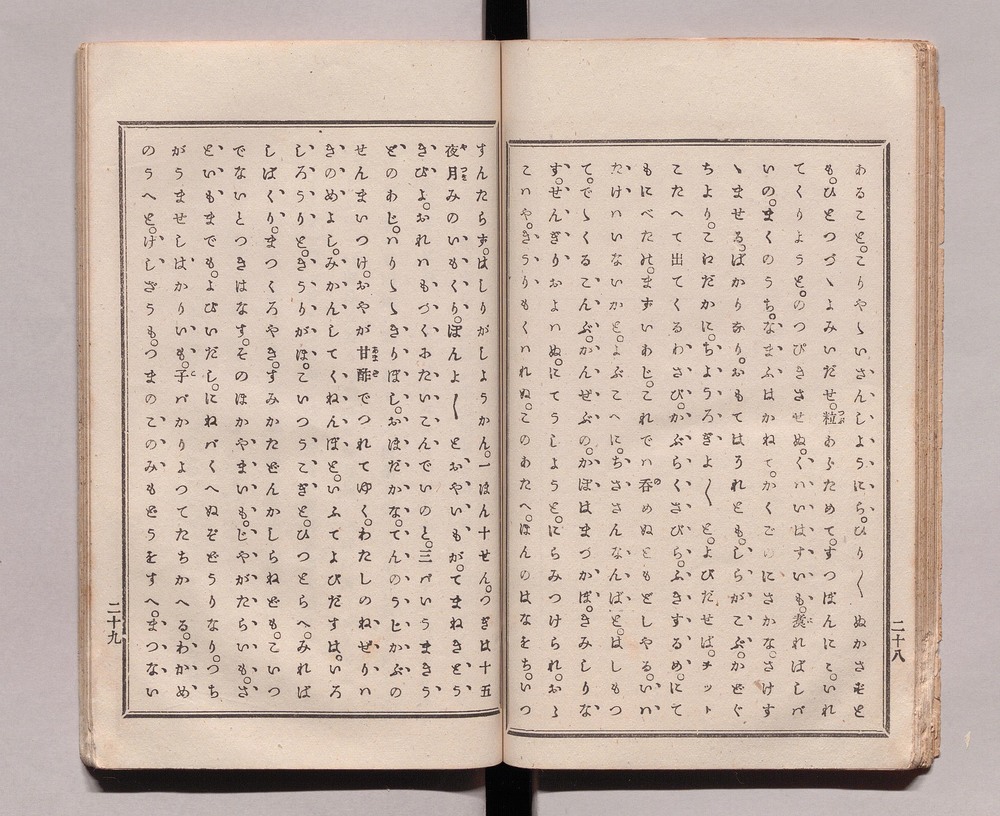 あることと。こりやゝいさんしように。ひり〳〵ぬかさぞと
も。ひとつづゝよみいだせ。粒あらためて。すつぽんにと。いれ
てくりようと。のつぴきさせぬ。くハいはすいも。煮ればしバ
いの。まくのうち。なまふはかねて。かくごのにさかな。さけす
ゝませる。ばかりなり。おもてはうれとも。しらがこぶ。かどぐ
ちより。こわだかに。ちようろぎよ〳〵と。よびだせば。チット
こたへて出てくるわさび。かぶらくさびら。ふきするめ。にて
もにべたれ。まずいあじ。これでハ呑めぬともどしやる。いハ
たけハいないかと。よぶこへに。ちささんなんばと。はしもつ
て。でゝくるこんぶ。かんぜぶの。かぼはまづかぼ。きみしりな
す。せんぎりおよハぬ。にてうしようと。にらみつけられ。おゝ
こハや。きうりもくハれぬ。このあたへ。ほんのはなをち。いつ
二十八
すんたらず。はしりがしようかん。一ほん十せん。つぎは十五
夜月みのいもくり。ぽんよ〳〵とおやいもが。てまねきとう
きびよ。おれハもづくおたいこんでいのと。三バいうまきう
どのあじ。ハりゝきりぼし。おほだかな。てんのうじかぶの
せんまいつけ。おやが甘酢でつれてゆく。わたしのねぜりハ
きのめよし。みかんしてくねんぼと。いふてよびだすは。いろ
しろうりと。きうりがほ。こいつうこぎと。ひつとらへ。みれば
しばくり。まつくろやき。すみかたどんかしらねども。こいつ
でないとつきはなす。そのほかやまいも。じやがたらいも。さ
といもまでも。よびいだし。にねバくへぬぞどうりなり。つち
がうませしはかりいも。子バかりよつてたちかへる。わかめ
のうへと。けしざうも。つまのこのみもどうをすへ。まつない
二十九